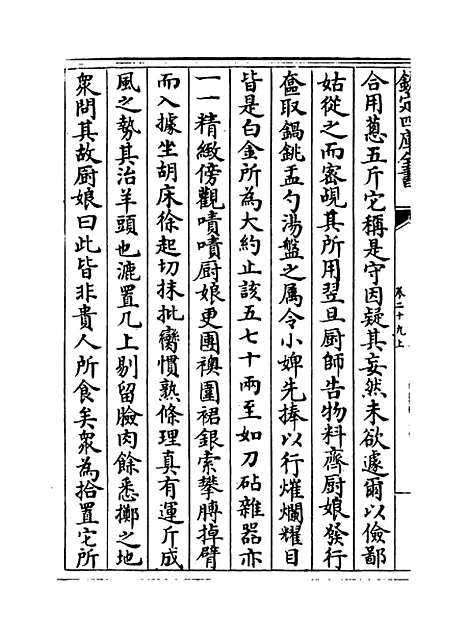 欽定四庫全書
卷二十九上
合用蔥五斤它稱是守因疑其妄然未欲遽爾以儉鄙
姑從之而宻覘其所用翌旦厨師告物料齊厨娘發行
奩取鍋銚盂勺湯盤之属令小婢先捧以行熣爛耀目
皆是白金所為大約止該五七十兩至如刀砧雜器亦
一一精緻傍觀嘖嘖厨娘更團襖圍裙銀索攀膊掉臂
而入據坐胡床徐起切抹批臠慣熟條理真有運斤成
風之勢其治羊頭也漉置几上剔留臉肉餘悉擲之地
衆問其故厨娘曰此皆非貴人所食矣衆為拾置它所